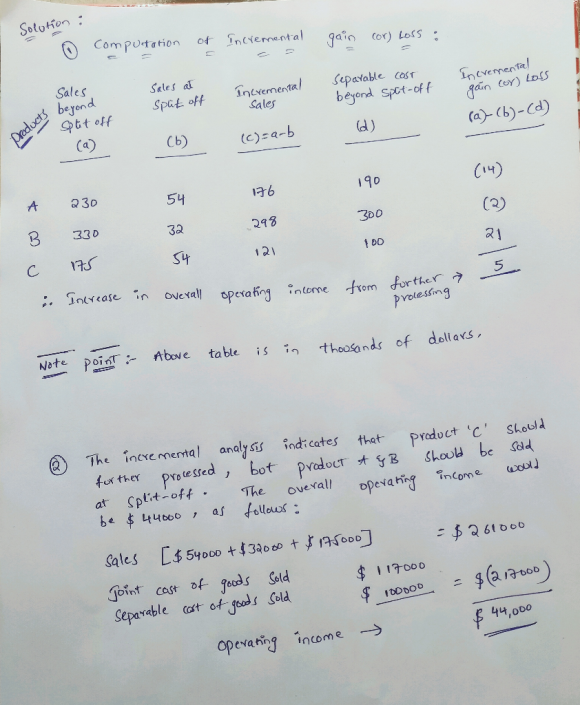 Solution :
① Computation of Incremental gain (or) Loss :
Products Sales beyond Split off (a) Sales at Split off (b) Incremental Sales (c)=a-b Separable cost beyond Split-off (d) Incremental gain (or) Loss (a)-(b)-(d)
A 230 54 176 190 (14)
B 330 32 298 300 (2)
C 175 54 121 100 21
∴ Increase in overall operating income from further processing → 5
Note point :- Above table is in thousands of dollars.
② The incremental analysis indicates that product 'C' should
further processed, but product A & B should be sold
at split-off. The overall operating income would
be $ 44000, as follows :
Sales [$54000 + $32000 + $175000] = $261000
Joint cost of goods Sold $ 117000
Separable cost of goods Sold $ 100000 = $(217000)
Operating income → $ 44,000